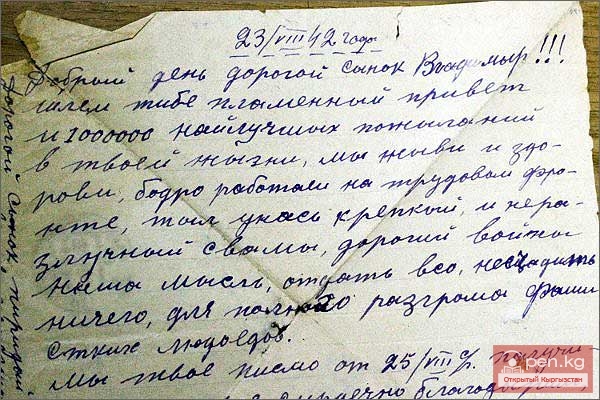 23/VIII 42 года
Добрый день дорогой сынок Владимыр!!!
шлем тибе пламенный привет
и 1000000 найлучшых пожыланий
в твоей жызни, мы жывы и здо-
ровы, бодро работаем на трудовом фро-
нте, тыл унас крепкий, и нера-
злучный свамы, дорогий войны
наша мысль, отдать всо, нещадить
ничего, для полного разгрома фаши
стких людоедов.
Мы твое писмо от 25/VIII получи
сердечно благодарой
Дорогой сынок,
Open.kg
Открытый Кыргызстан